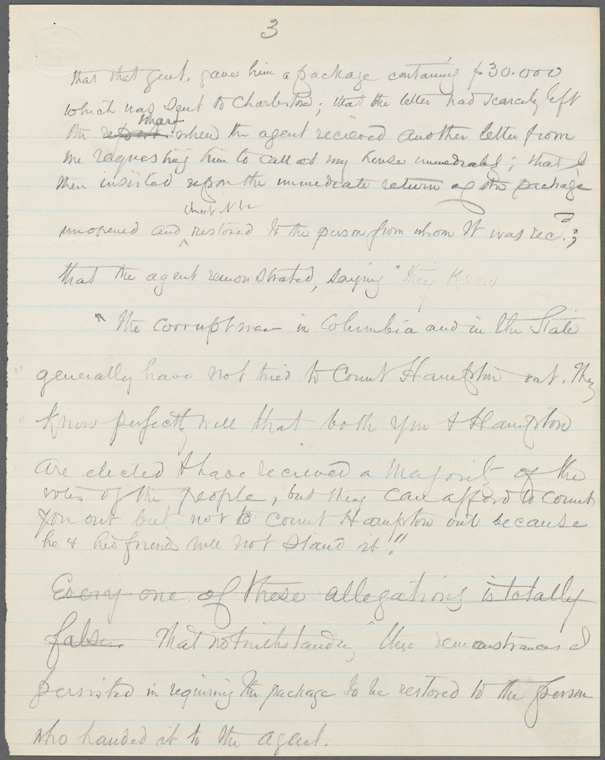 3
that that gent. gave him a package containing $30.000
which was sent to Charleston; that the letter had scarcely left
wharf
the when the agent recieved another letter from
me requesting him to call at my house immediately; that I
then insisted upon the immediate return of the package
unopened and restored to the person from whom it was rec.d;
that the agent remonstrated, saying "they know
"The corrupt men in Columbia and in the State
generally have not tried to Count Hampton out. They
know perfectly well that both you & Hampton
are elected & have recieved a Majority of the
votes of the people, but they can afford to Count
you out but not to Count Hampton out because
he & his friends will not stand it."
Every one of these allegations is totally
false. That notwithstanding these remonstrances I
persisted in requiring the package to be restored to the person
who handed it to the agent.